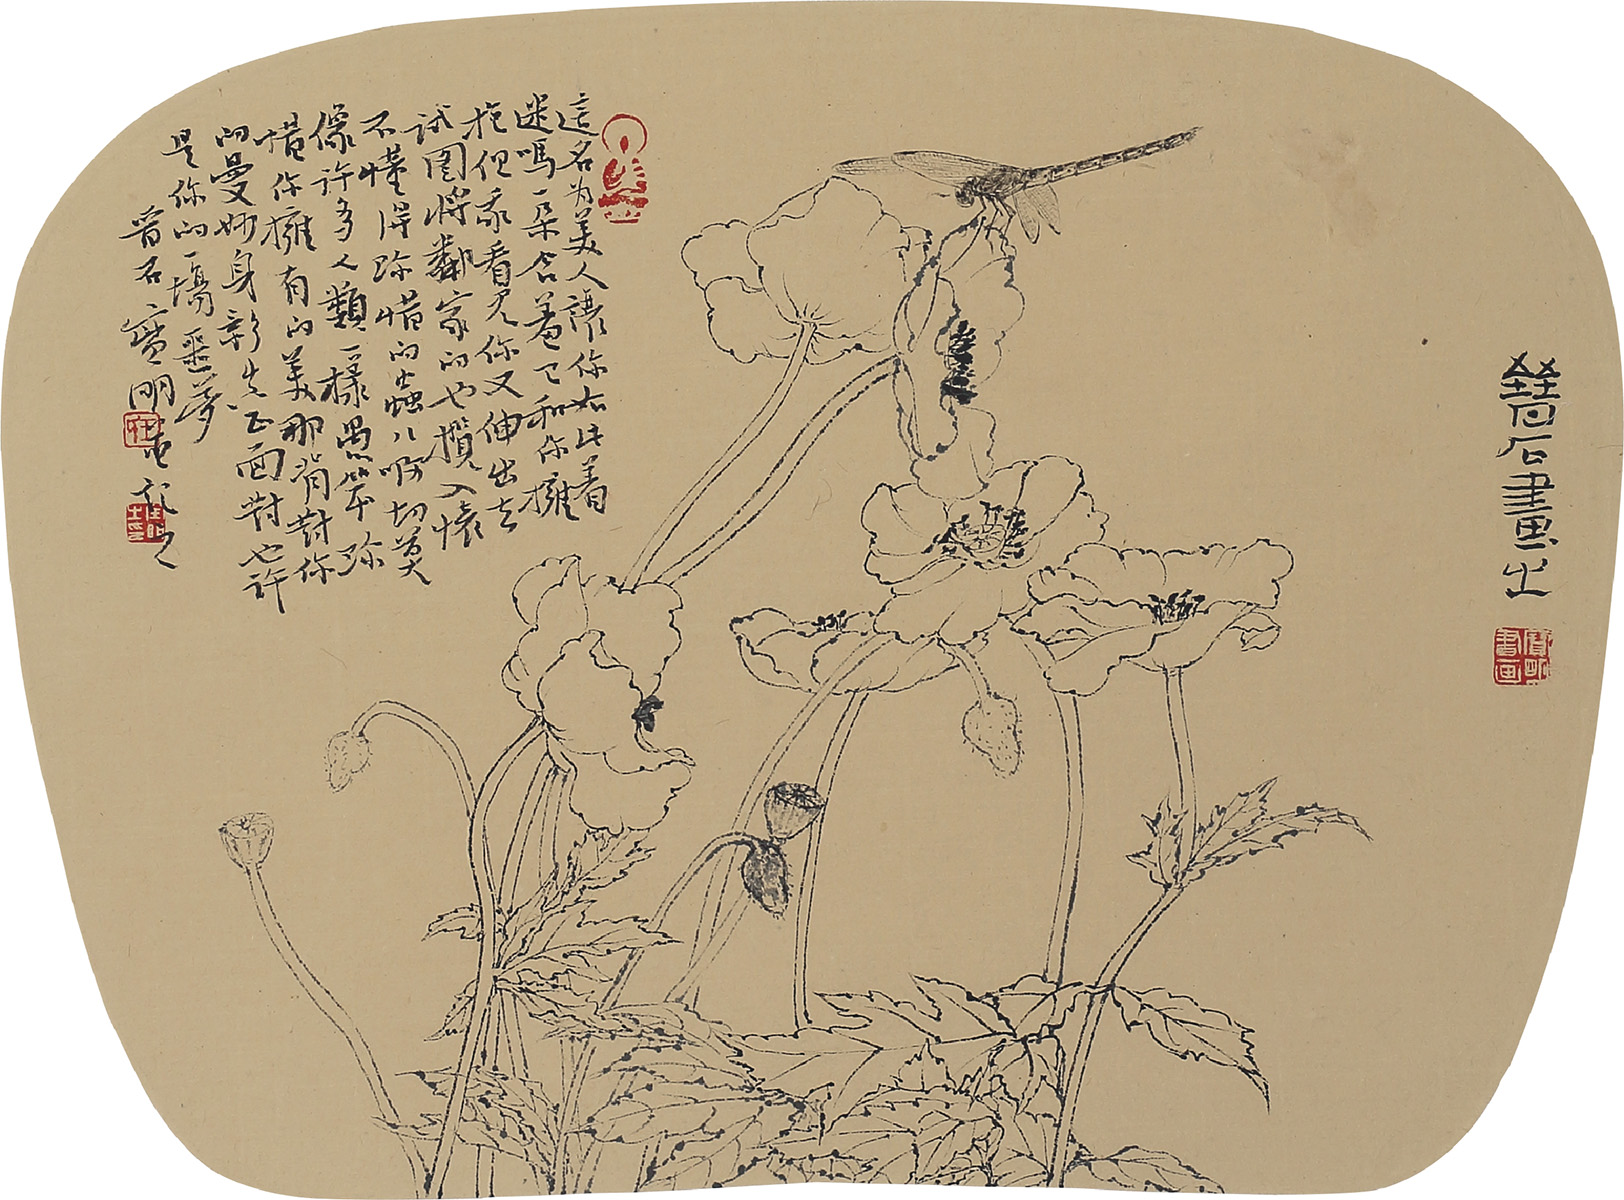 晉石畫之
這名为美人讓你如此着
迷嗎一朵含羞了和你擁
抱但我看見你又伸出去
试图将鄰家的也攬入懷
不懂得珍惜的蟲儿啊切莫
像許多人類一樣愚笨珍
惜你擁有的美那背對你
的曼妙身影先正面對也許
是你的一場噩夢
晉石寶明
記之